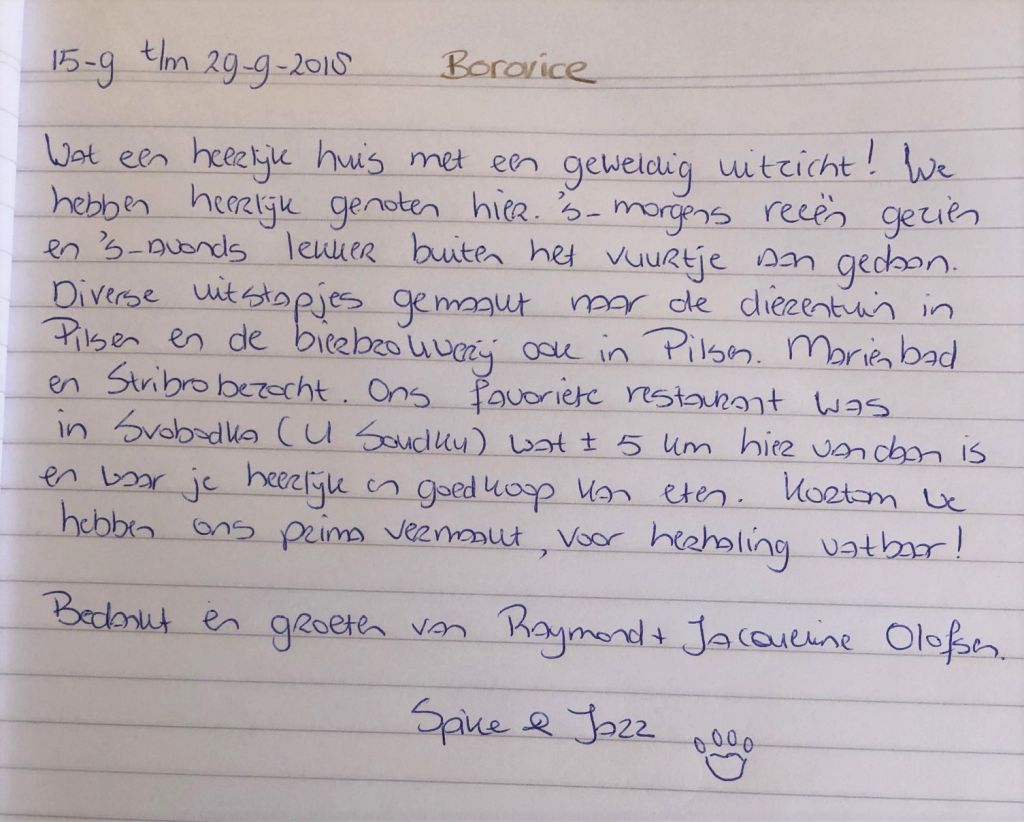 15-9 t/m 29-9-2018 Borovice
Wat een heerlijk huis met een geweldig uitzicht! We
hebben heerlijk genoten hier. 's-morgens reeën gezien
en 's-avonds lekker buiten het vuurtje aan gedaan.
Diverse uitstapjes gemaakt naar de dierentuin in
Pilsen en de bierbrouwerij ook in Pilsen. Mariënbad
en Stribro bezocht. Ons favoriete restaurant was
in Svobodka (U Soudku) wat ± 5 km hier vandaan is
en waar je heerlijk en goedkoop kan eten. Kortom we
hebben ons prima vermaakt, voor herhaling vatbaar!
Bedankt en groeten van Raymond + Jacqueline Olofsen.
Spike & Jazz